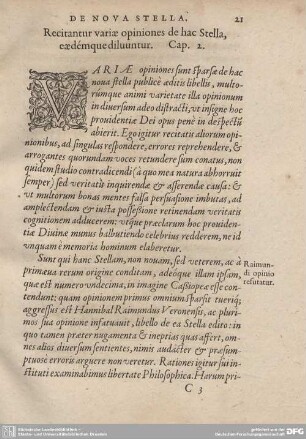 DE NOVA STELLA. 21
Recitantur variæ opiniones de hac Stella,
eædémque diluuntur. Cap. 2.
VARIÆ opiniones sunt sparsæ de hac
noua stella publicè æditis libellis, multo-
rúmque animi varietate illa opinionum
in diuersum adeo distracti, vt insigne hoc
prouidentiæ Dei opus penè in despectũ
abierit. Ego igitur recitatis aliorum opi-
nionibus, ad singulas respondere, errores reprehendere, &
arrogantes quorundam voces retundere sum conatus, non
quidem studio contradicendi (à quo mea natura abhorruit
semper) sed veritatis inquirendæ & asserendæ causa: &
vt multorum bonas mentes falsa persuasione imbutas, ad
amplectendam & iusta possessione retinendam veritatis
cognitionem adducerem; vtque præclarum hoc prouiden-
tiæ Diuinæ munus balbutiendo celebrius redderem, ne id
vnquam è memoria hominum elaberetur.
Sunt qui hanc Stellam, non nouam, sed veterem, ac à
primæua rerum origine conditam, adeóque illam ipsam,
quæ est numero vndecima, in imagine Cassiopeæ esse con-
tendunt: quam opinionem primus omnium sparsit tueriq;
aggressus est Hannibal Raimundus Veronensis, ac plurimos
sua opinione infatuauit, libello de ea Stella edito: in
quo tamen præter nugamenta & ineptias quas affert, om-
nes alios diuersum sentientes, nimis audacter & præsum-
ptuosè erroris arguere non veretur. Rationes igitur sui in-
stituti examinabimus libertate Philosophica. Harum pri-
Raimun-
di opinio
refutatur.
C 3